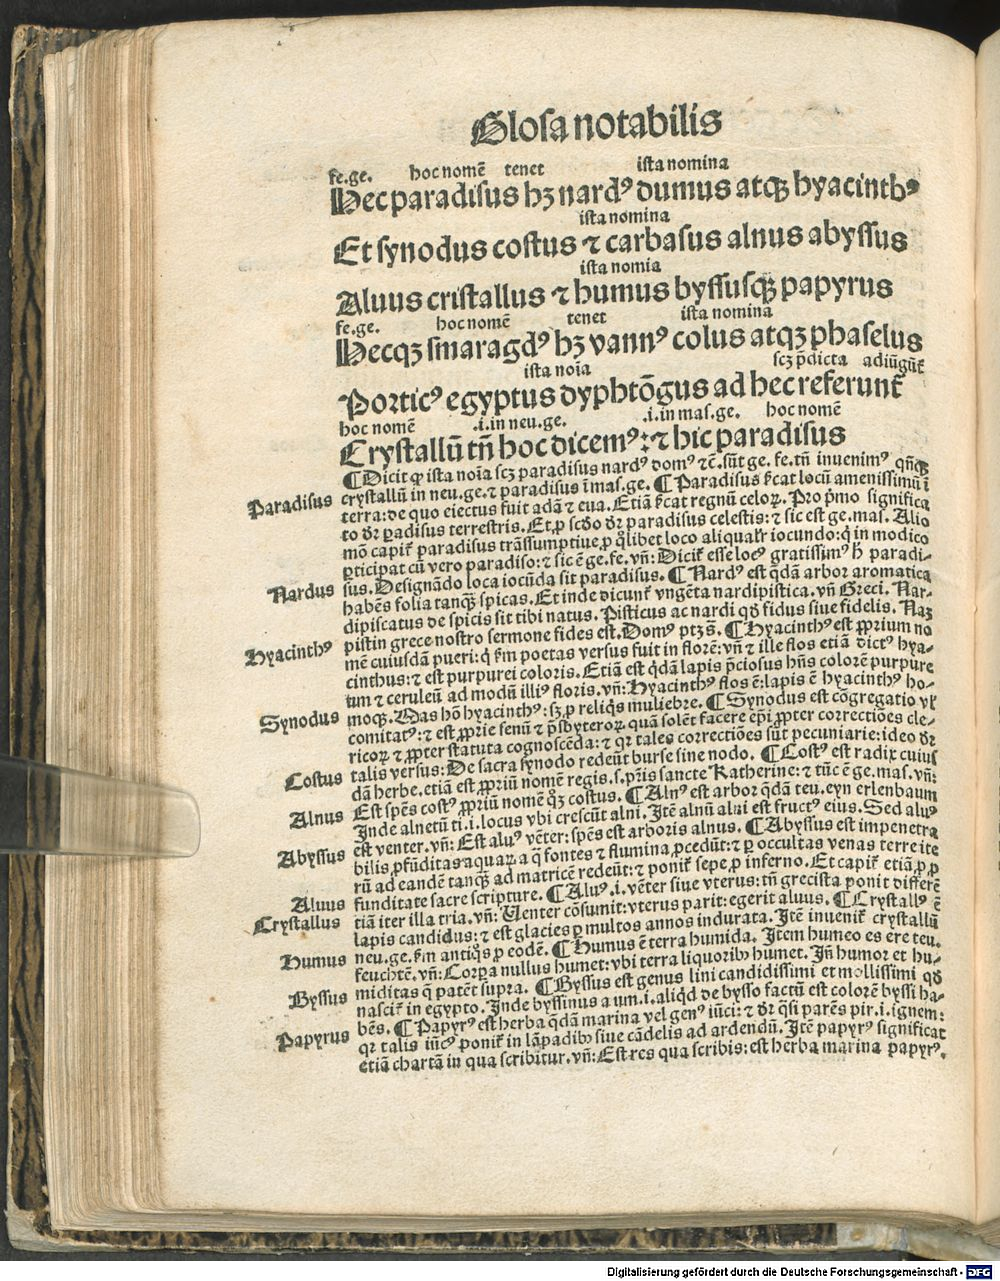 Glosa notabilis
fe.ge. hoc nomē tenet ista nomina
Hec paradisus hꝫ nardꝰ dumus atqꝫ hyacinthꝰ
ista nomina
Et synodus costus ⁊ carbasus alnus abyssus
ista nomia
Aluus cristallus ⁊ humus byssusqꝫ papyrus
fe.ge. hoc nomē tenet ista nomina
Hecqꝫ smaragdꝰ hꝫ vannꝰ colus atqꝫ phaselus
ista noīa scꝫ p̄dicta adiūgūt̄
Porticꝰ egyptus dyphtōgus ad hec referunt̄
hoc nomē .i.in neu.ge. .i.in mas.ge. hoc nomē
Crystallū tn̄ hoc dicemꝰ: ⁊ hic paradisus
¶ Dicit ꝙ ista noīa scꝫ paradisus nardꝰ domꝰ ⁊c̄.sūt ge. fe.tn̄ inuenimꝰ qn̄qꝫ
Paradisus crystallū in neu.ge.⁊ paradisus ī mas.ge. ¶ Paradisus s̄cat locū amenissimū ī
terra: de quo eiectus fuit adā ⁊ eua. Etiā s̄cat regnū celoꝝ. Pro p̄mo significa
to dr̄ ꝑadisus terrestris. Et ꝓ scd̄o dr̄ paradisus celestis: ⁊ sic est ge.mas. Alio
mō capit̄ paradisus trāssumptiue ꝓ qͥlibet loco aliqualr̄ iocundo: qͥ in modico
ꝑticipat cū vero paradiso: ⁊ sic ē ge.fe.vn̄: Dicit̄ esse locꝰ gratissimꝰ h̄ paradi-
sus. Designādo loca iocūda sit paradisus. ¶ Nardꝰ est qdā arbor aromatica
Nardus habēs folia tanqꝫ spicas. Et inde dicunt̄ vngēta nardipistica. vn̄ Greci. Nar-
dipiscatus de spicis sit tibi natus. Pisticus ac nardi qd̄ fidus siue fidelis. Naꝫ
Hyacinthꝰ pistin grece nostro sermone fides est. Domꝰ ptꝫ s̄. ¶ Hyacinthꝰ est ꝓprium no
mē cuiusdā pueri: qͥ s̄m poetas versus fuit in florē: vn̄ ⁊ ille flos etiā dictꝰ hya-
cinthus: ⁊ est purpurei coloris. Etiā est qdā lapis p̄ciosus hn̄s colorē purpure
um ⁊ ceruleū ad modū illiꝰ floris. vn̄: Hyacinthꝰ flos ē: lapis ē hyacinthꝰ ho-
Synodus moqꝫ. Mas hō hyacinthꝰ: sꝫ ꝓ reliqͥs muliebre. ¶ Synodus est cōgregatio vl̄
comitatꝰ: ⁊ est ꝓprie senū ⁊ p̄sbyteroꝝ quā solēt facere ep̄i ꝓpter correctiōes cle-
ricoꝝ ⁊ ꝓpter statuta cognoscēda: ⁊ qꝛ tales correctiōes sūt pecuniarie: ideo dr̄
talis versus: De sacra synodo redeūt burse sine nodo. ¶ Costꝰ est radix cuius
Costus dā herbe. etiā est ꝓpriū nomē regis .s.pr̄is sancte Katherine: ⁊ tūc ē ge.mas. vn̄:
Est spēs costꝰ ꝓpriū nomē qͦꝫ costus. ¶ Alnꝰ est arbor qdā teu. eyn erlenbaum
Alnus Inde alnetū ti.i.locus vbi crescūt alni. Itē alnū alni est fructꝰ eius. Sed aluꝰ
est venter. vn̄: Est aluꝰ vēter: spēs est arboris alnus. ¶ Abyssus est impenetra
Abyssus bilis ꝓfūditas aquaꝝ a q̄ fontes ⁊ flumina ꝓcedūt: ⁊ ꝑ occultas venas terre ite
rū ad eandē tanqꝫ ad matricē redeūt: ⁊ ponit̄ sepe ꝓ inferno. Et capit̄ etiā ꝓ ꝓ
Aluus funditate sacre scripture. ¶ Aluꝰ .i. vēter siue vterus: tn̄ grecista ponit differē
tiā iter illa tria. vn̄: Venter cōsumit: vterus parit: egerit aluus. ¶ Crystallꝰ ē
Crystallus lapis candidus: ⁊ est glacies ꝑ multos annos indurata. Itē inuenit̄ crystallū
neu.ge. s̄m antiqͦs ꝓ eodē. ¶ Humus ē terra humida. Item humeo es ere teu.
Humus feuchtē. vn̄: Corꝑa nullus humet: vbi terra liquoribꝫ humet. Īn̄ humor et hu-
miditas q̄ patēt supra. ¶ Byssus est genus lini candidissimi et mollissimi qd̄
Byssus nascit̄ in egypto. Inde byssinus a um .i. aliqd̄ de bysso factū est colorē byssi ha-
bēs. ¶ Papyrꝰ est herba qdā marina vel genꝰ iūci: ⁊ dr̄ qͣsi parēs pir .i. ignem:
Papyrus qꝛ talis iūcꝰ ponit̄ in lāpadibꝫ siue cādelis ad ardendū. Itē papyrꝰ significat
etiā chartā in qua scribitur. vn̄: Est res qua scribis: est herba marina papyrꝰ.
Digitalisierung gefördert durch die Deutsche Forschungsgemeinschaft - DFG